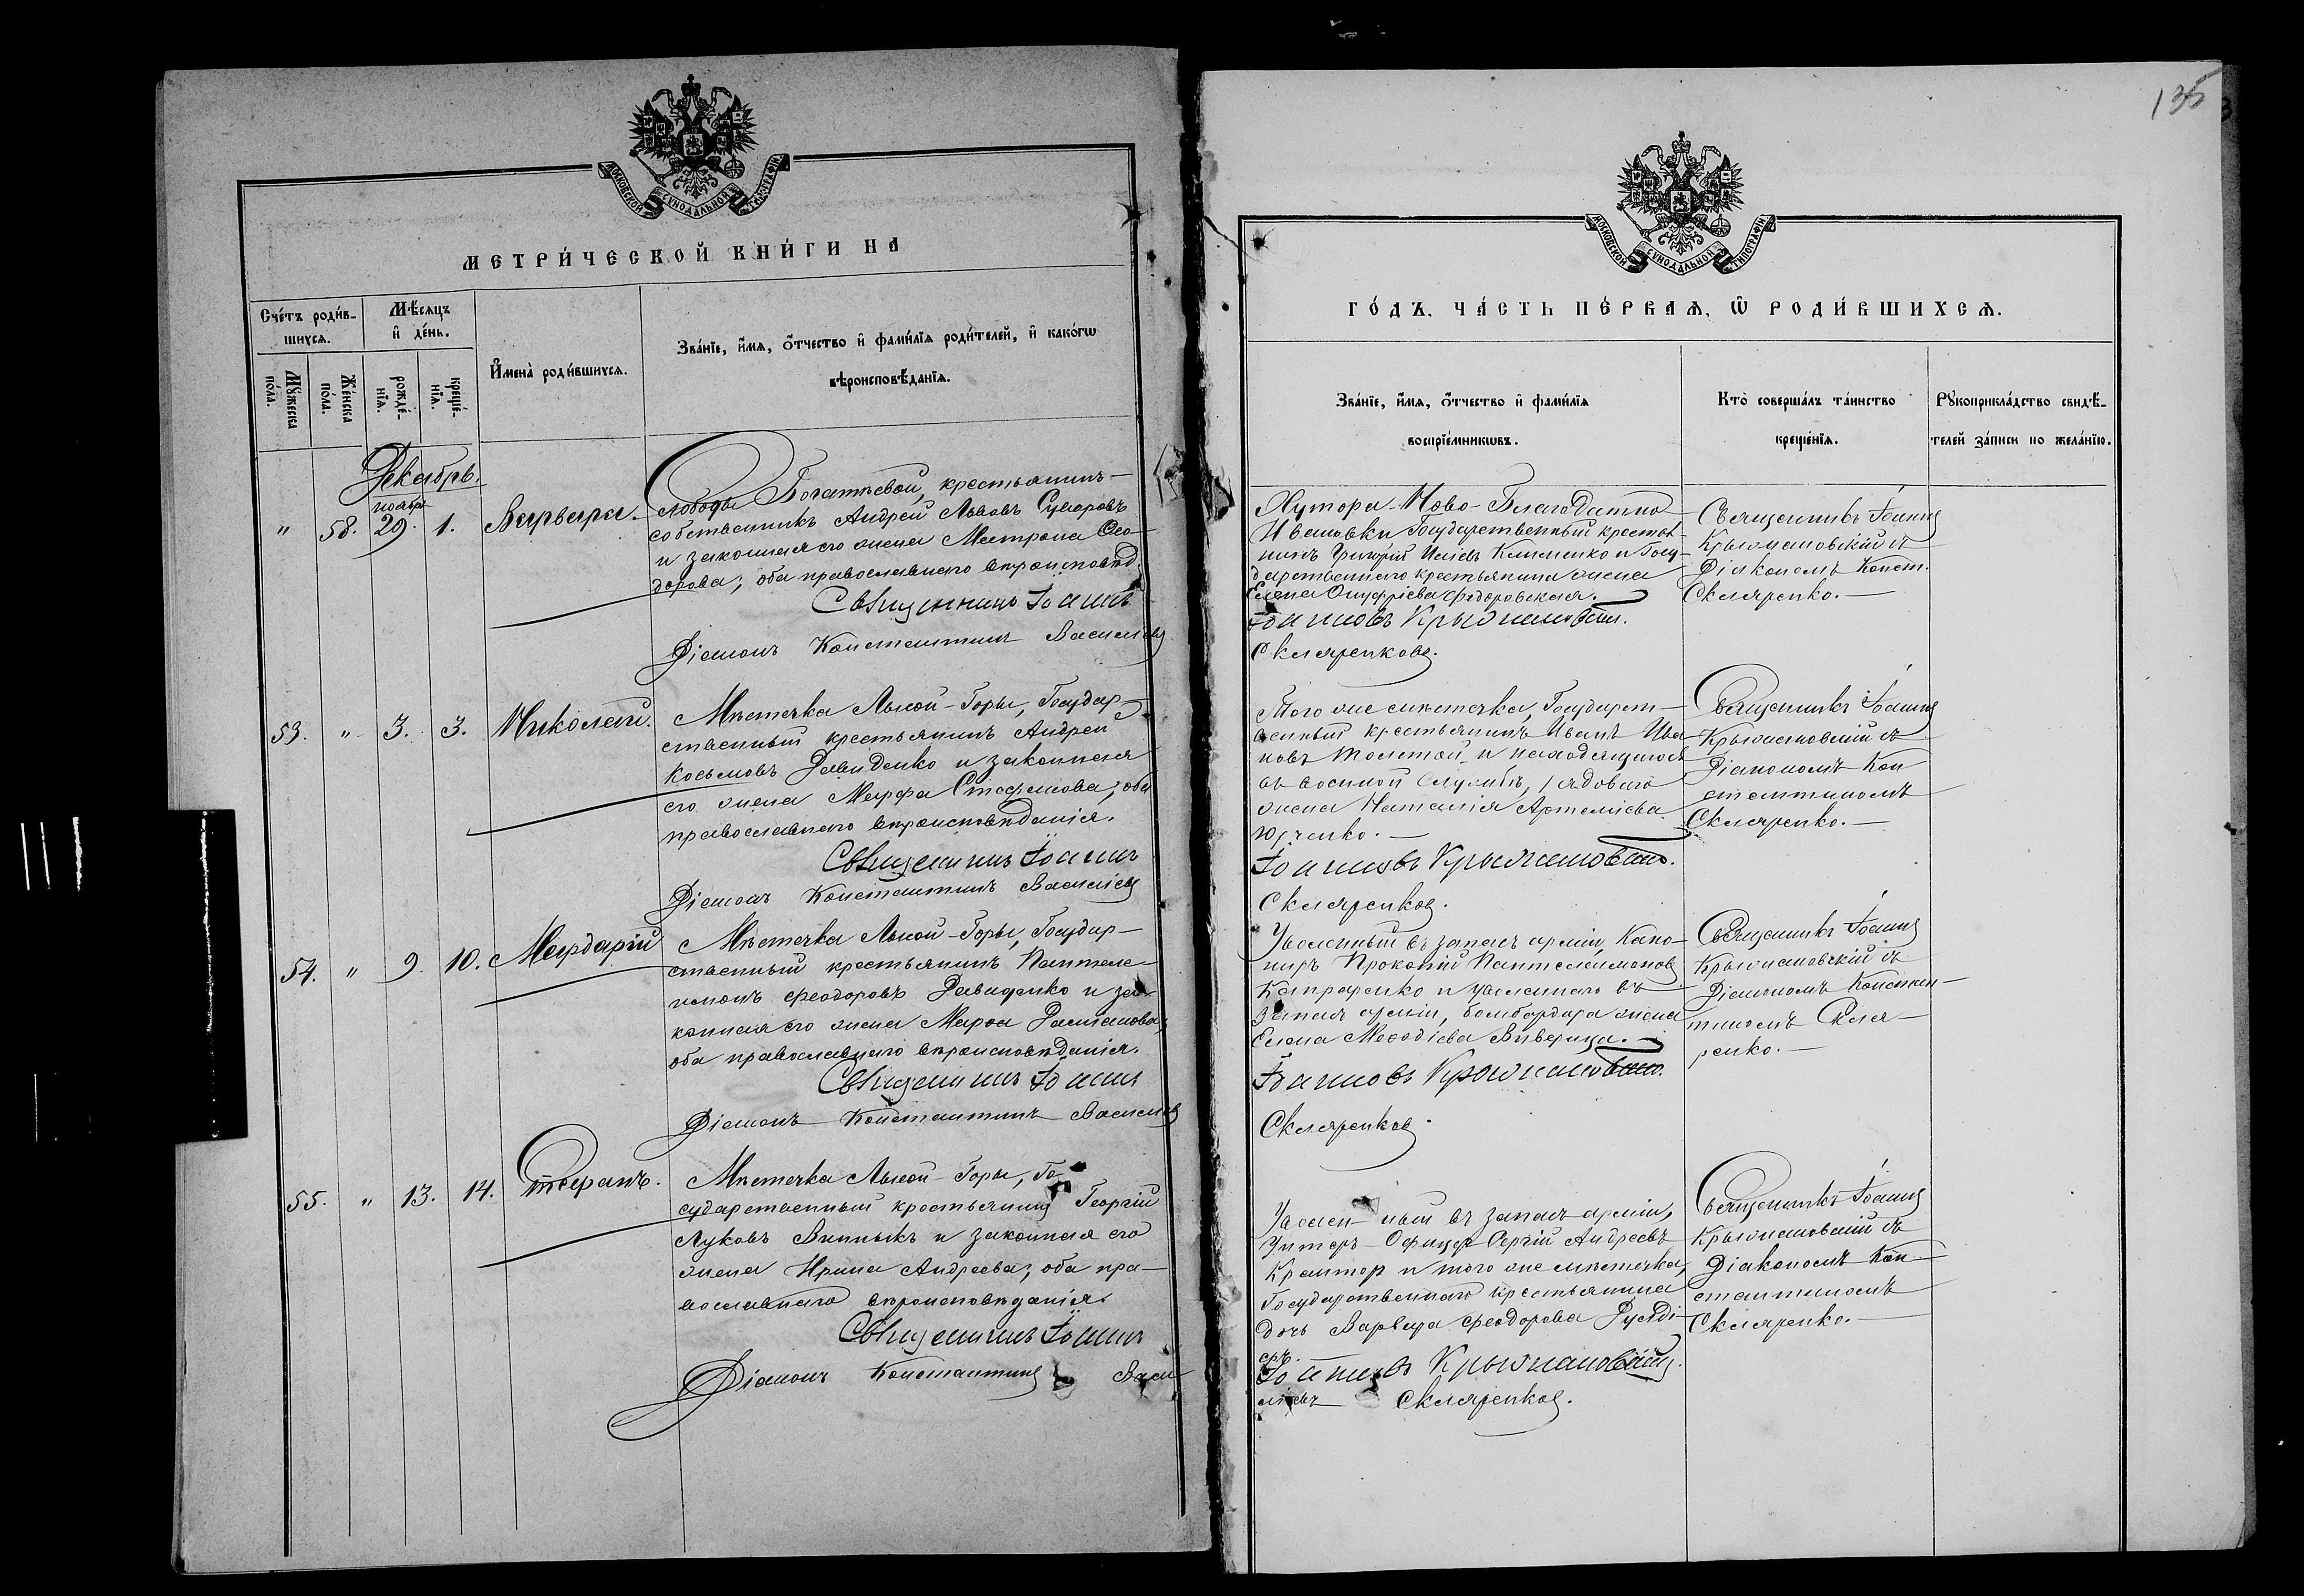 МОСКОВСКОЙ СѴНОДАЛЬНОЙ ТИПОГРАФІИ
МЕТРИ́ЧЕСКОЙ КНИ́ГИ НА
Сче́тъ роди́в-
шихсѧ.
Мѣ́сѧцъ
и҆ де́нь.
Мꙋ́жеска
по́ла.
Же́нска
по́ла.
рожде́-
нїѧ.
креще́-
нїѧ.
И҆мена̀ роди́вшихсѧ.
Зва́нїе, и҆́мѧ, ѻ҆́тчество и҆ фамѝлїѧ роди́телей, и҆ како́гѡ
вѣроисповѣ́данїѧ.
Декабрь.
ноября
" 58. 29. 1. Варвара.
Слободы Богатыевой, крестьянинъ
собственникъ Андрей Львовъ
и законная его жена Матрона Ѳео-
дорова; оба православнаго вѣроисповѣд.
Священникъ Іоаннъ
Діаконъ Константинъ Василіевъ
53. " 3. 3. Николай.
Мѣстечка Лысой-Горы, Государ-
ственный крестьянинъ Андрей
Косьмовъ Давиденко и законная
его жена Марфа Стефанова; оба
православнаго вѣроисповѣданія.
Священникъ Іоаннъ
Діаконъ Константинъ Василіевъ
54. " 9. 10. Мардарій
Мѣстечка Лысой-Горы, Государ-
ственный крестьянинъ Пантеле-
имонъ Феодоровъ Давиденко и за-
конная его жена Марѳа Даміанова,
оба православнаго вѣроисповѣданія.
Священникъ Іоаннъ
Діаконъ Константинъ Василіевъ
55. " 13. 14. Стефанъ.
Мѣстечка Лысой-Горы, Го-
сударственный крестьянинъ Георгій
Луковъ Винныкъ и законная его
жена Ирина Андреева; оба пра-
вославнаго вѣроисповѣданія.
Священникъ Іоаннъ
Діаконъ Константинъ Васи
135
МОСКОВСКОЙ СѴНОДАЛЬНОЙ ТИПОГРАФІИ
ГО́ДЪ, ЧА́СТЬ ПЕ́РВАѦ, Ѡ҆ РОДИ́ВШИХСѦ.
Зва́нїе, и҆́мѧ, ѻ҆́тчество и҆ фамѝлїѧ
воспрїе́мникѡвъ.
Кто̀ соверша́лъ та́инство
креще́нїѧ.
Рꙋкоприкла́дство свидѣ́-
телей за́писи по жела́нїю.
Хутора-Ново-Благодатно-
Ивановки Государственный крестья-
нинъ Григорій Исаевъ Клименко и Госу-
дарственнаго крестьянина жена
Елена Онуфріева Федоровская.
Іоанновъ Крыжановскій.
Скляренковъ.
Священникъ Іоаннъ
Крыжановскій съ
Діакономъ Конст.
Скляренко.
Того же мѣстечка, Государст-
венный крестьянинъ Иванъ Ива-
новъ Толстой и находящагося
въ военной службѣ, рядоваго
жена Наталія Артеміева
Юрченко.
Іоанновъ Крыжановскій.
Скляренковъ.
Священникъ Іоаннъ
Крыжановскій съ
Діакономъ Кон
стантиномъ
Скляренко.
Уволенный въ запасъ арміи, Кано-
ниръ Прокопій Пантелеимоновъ
и уволеннаго въ
запасъ арміи, бомбардира жена
Елена Меѳодіева
Іоанновъ Крыжановскій.
Скляренковъ.
Священникъ Іоаннъ
Крыжановскій съ
Діакономъ Констан-
тиномъ Скля-
ренко.
Уволен-ный въ запасъ арміи,
Унтеръ-Офицеръ Сергій Андреевъ
и того же мѣстечка,
Государственнаго крестьянина
дочь Варвара Феодорова
Іоанновъ Крыжановскій.
ліевъ Скляренковъ.
Священникъ Іоаннъ
Крыжановскій съ
Діакономъ Кон-
стантиномъ
Скляренко.